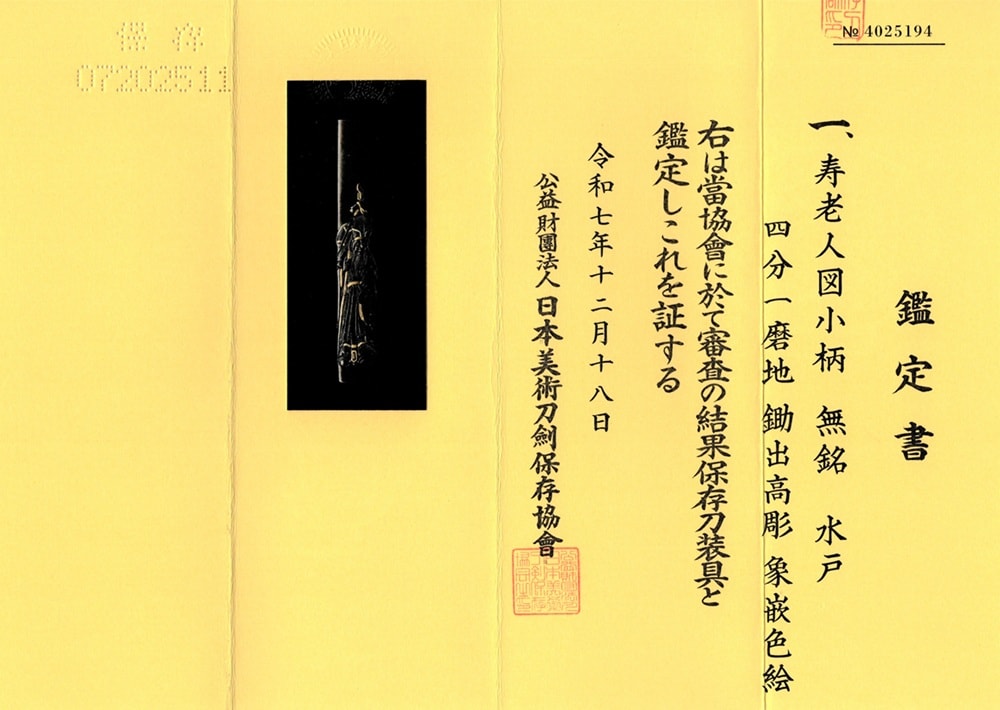 № 4025194
鑑定書
一、寿老人図小柄 無銘 水戸
四分一磨地 鋤出高彫 象嵌色絵
右は當協會に於て審査の結果保存刀装具と
鑑定しこれを証する
令和七年十二月十八日
公益財團法人 日本美術刀劍保存協會
保存
07202511